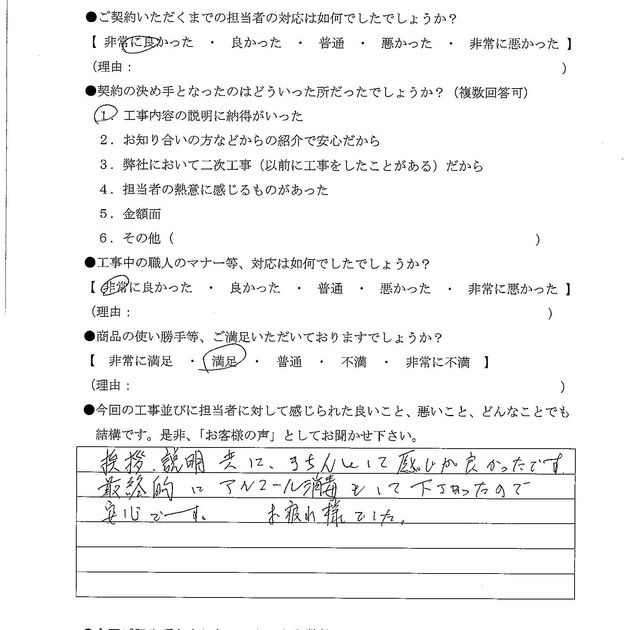 ●ご契約いただくまでの担当者の対応は如何でしたでしょうか？
【 非常に良かった ・ 良かった ・ 普通 ・ 悪かった ・ 非常に悪かった 】
（理由： ）
●契約の決め手となったのはどういった所だったでしょうか？（複数回答可）
1．工事内容の説明に納得がいった
2．お知り合いの方などからの紹介で安心だから
3．弊社において二次工事（以前に工事をしたことがある）だから
4．担当者の熱意に感じるものがあった
5．金額面
6．その他（ ）
●工事中の職人のマナー等、対応は如何でしたでしょうか？
【 非常に良かった ・ 良かった ・ 普通 ・ 悪かった ・ 非常に悪かった 】
（理由： ）
●商品の使い勝手等、ご満足いただいておりますでしょうか？
【 非常に満足 ・ 満足 ・ 普通 ・ 不満 ・ 非常に不満 】
（理由： ）
●今回の工事並びに担当者に対して感じられた良いこと、悪いこと、どんなことでも
結構です。是非、「お客様の声」としてお聞かせ下さい。
挨拶、説明 共に、きちんとして感じが良かったです
最終的にアルコール消毒もして下さったので
安心です。 お疲れ様でした。